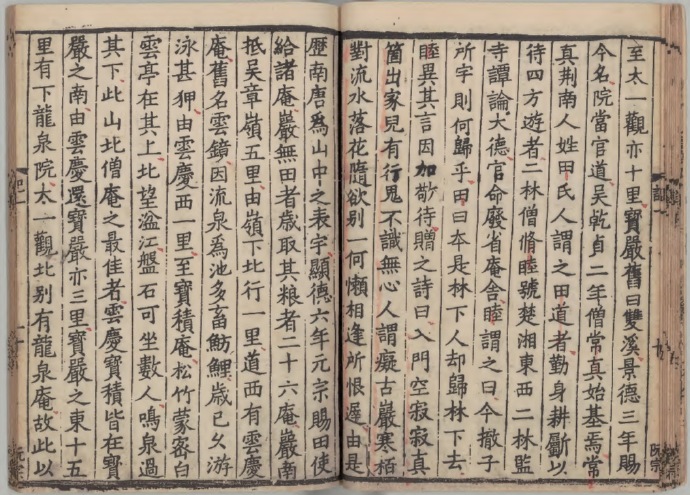 至太一觀亦十里寶嚴舊曰雙溪景德三年賜
今名院當官道吳乾貞二年僧常真始基焉常
真荆南人姓田氏人謂之田道者勤身耕斸以
待四方遊者二林僧脩睦號楚湘東西二林監
寺譚論大德官命廢省庵舎睦謂之曰今撤子
所字則何歸乎田曰夲是林下人却歸林下去
睦異其言因加敬待贈之詩曰入門空寂寂真
箇出家兒有行鬼不識無心人謂癡古巖寒栢
對流水落花隨欲别一何懶相逢所恨遲由是
歴南唐爲山中之表字顯德六年元宗賜田使
給諸庵巖無田者歳取其粮者二十六庵巖南
抵吴章嶺五里由嶺下北行一里道西有雲慶
庵舊名雲鏡因流泉爲池多畜魴鯉歳已久游
泳甚狎由雲慶西一里至寶積庵松竹蒙密白
雲亭在其上北望湓江盤石可坐數人鳴泉過
其下此山北僧庵之最佳者雲慶寶積皆在寶
嚴之南由雲慶還寶嚴亦三里寶嚴之東十五
里有下龍泉院太一觀北别有龍泉庵故此以